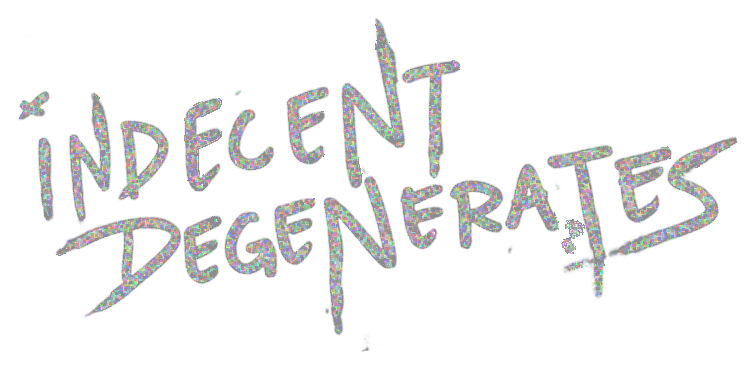 iNDECENT
DEGENERATES